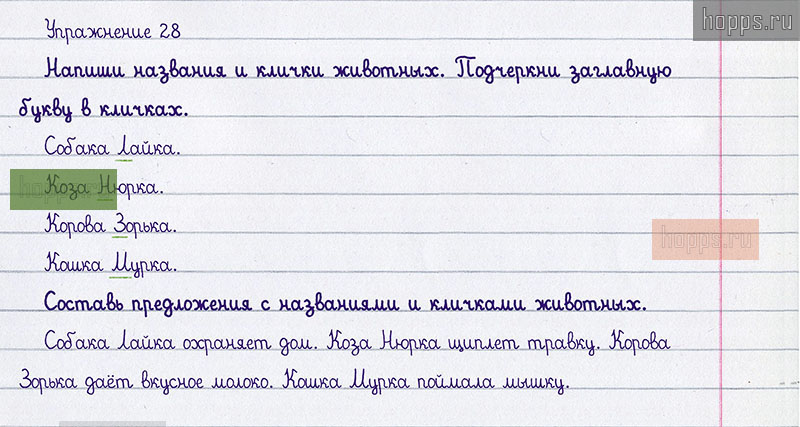 hopps.ru
Упражнение 28
Напиши названия и клички животных. Подчеркни заглавную
букву в кличках.
Собака Лайка.
Коза Нюрка.
hopps.ru
Корова Зорька.
hopps.ru
Кошка Мурка.
Составь предложения с названиями и кличками животных.
Собака Лайка охраняет дом. Коза Нюрка щиплет травку. Корова
Зорька даёт вкусное молоко. Кошка Мурка поймала мышку.